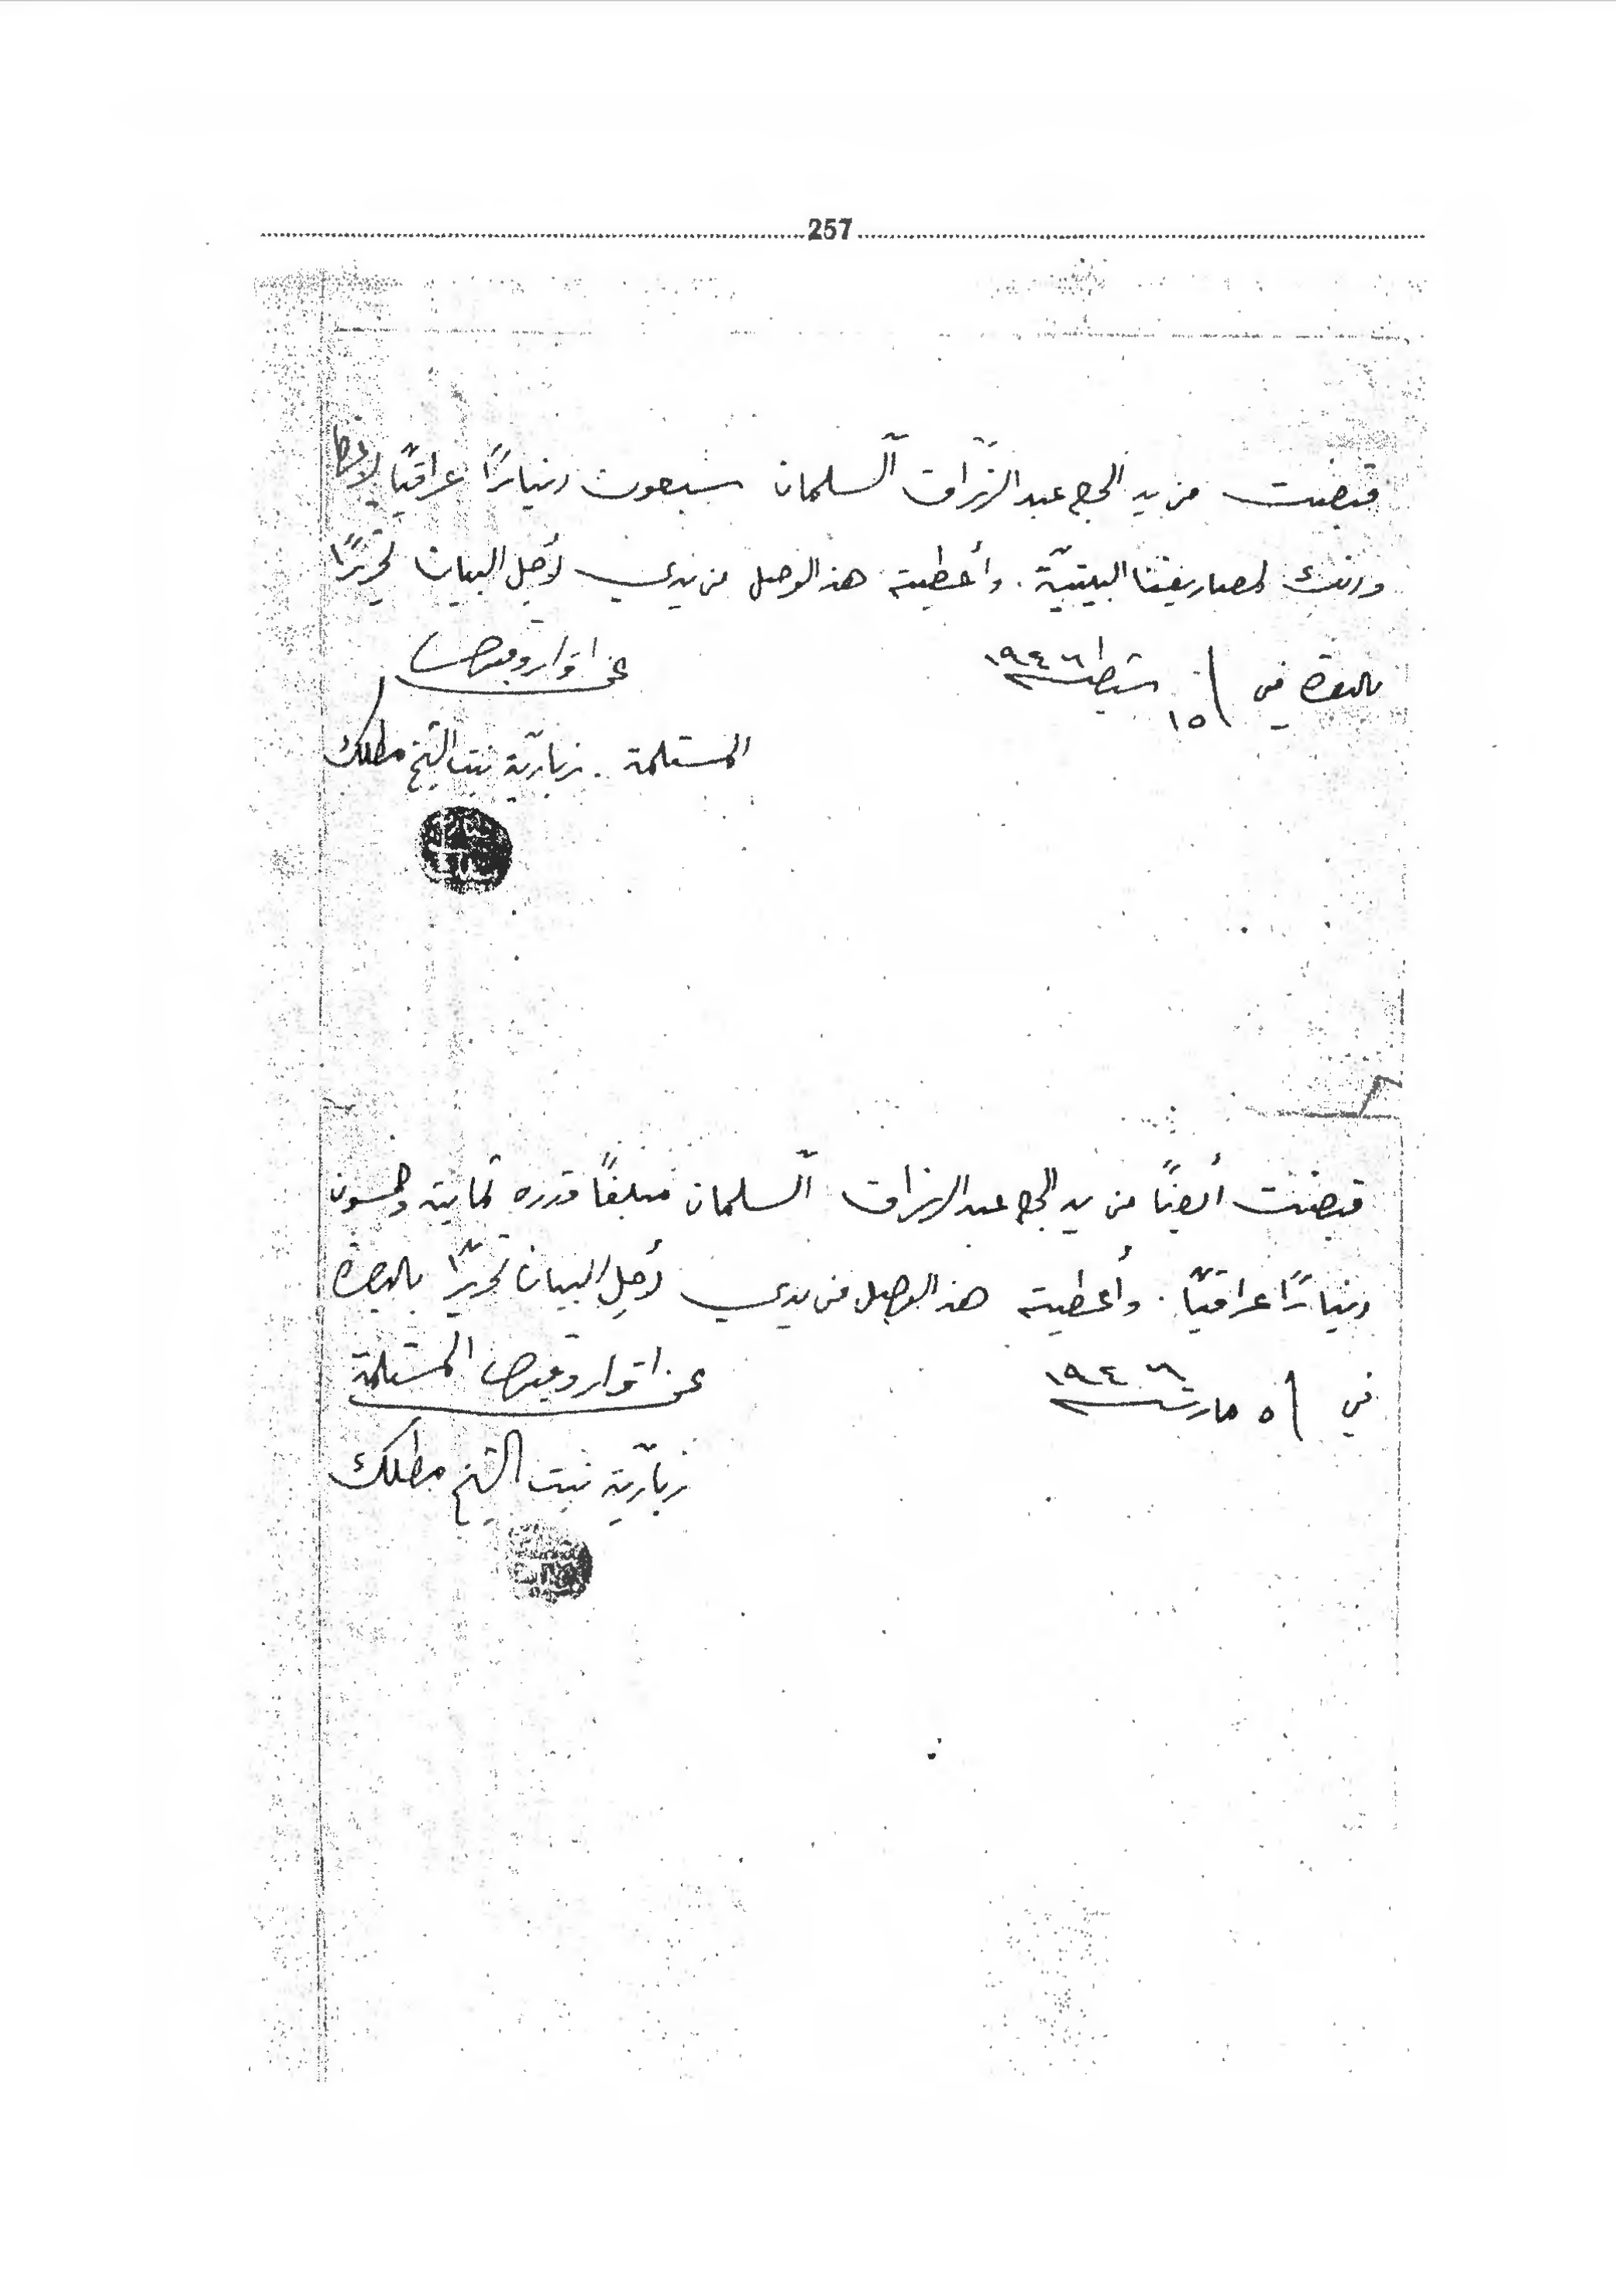 257
قبضت من يد الحاج عبد الرزّاق آلسلمان سبعون ديناراً عراقيّاً لا غير
وذلك لمصاريفنا البيتيّة. وأعطيته هذا الوصل من يدي لأجل البيان تحريراً
بالبصرة في ١٥ شباط ١٩٤٦
عن اقرار وقبض
المستلمة. زباريّة بنت الشيخ مطلك
قبضت أيضاً من يد الحاج عبد الرزاق آلسلمان مبلغاً قدره ثمانية وخمسون
ديناراً عراقيّاً. وأعطيته هذا الوصل من يدي لأجل البيان تحريراً بالبصرة
في ٥ مارت ١٩٤٦
عن اقرار وقبض المستلمة
زباريّة بنت الشيخ مطلك